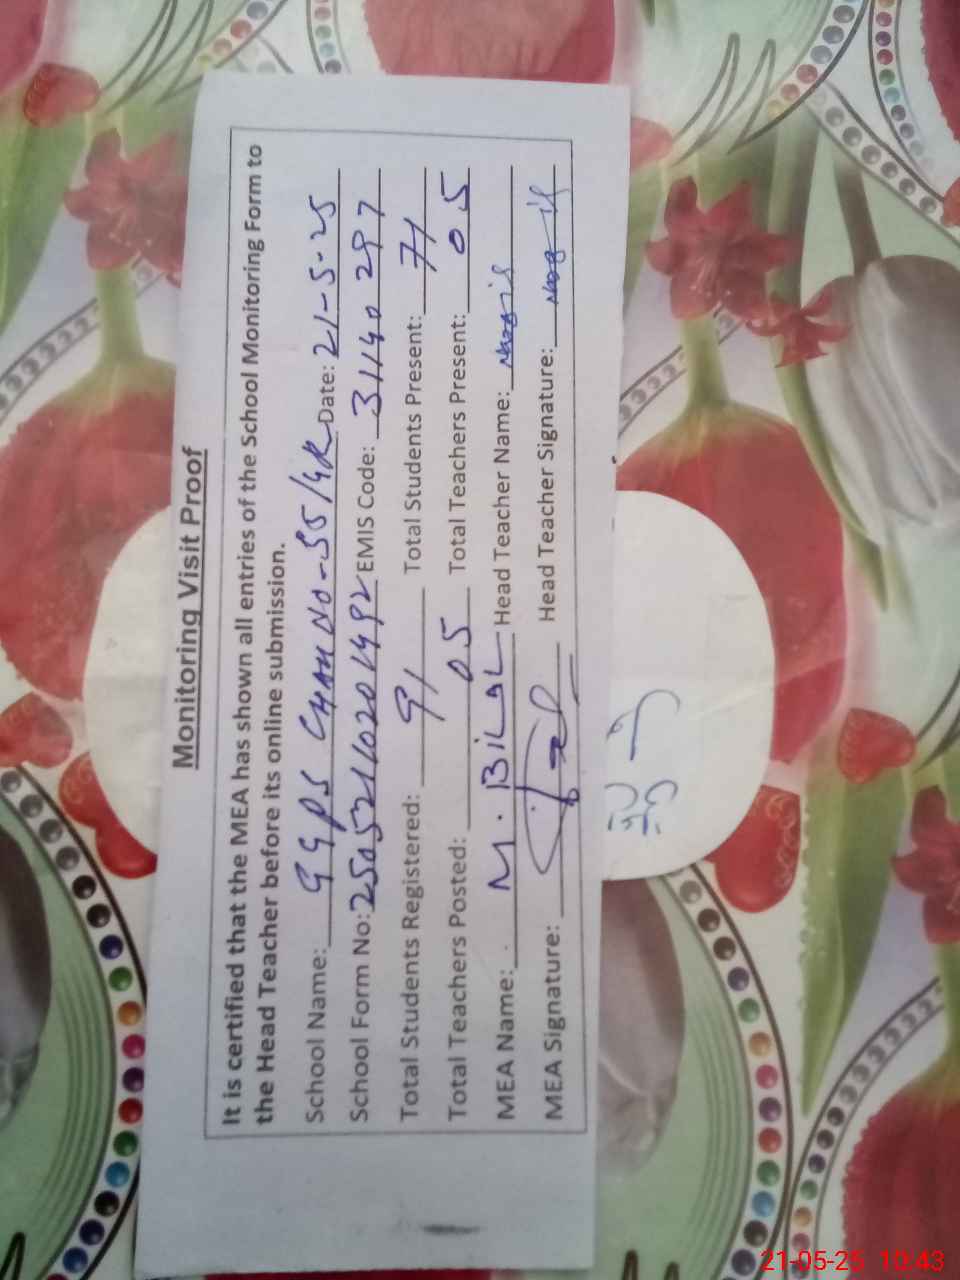 Monitoring Visit Proof
It is certified that the MEA has shown all entries of the School Monitoring Form to
the Head Teacher before its online submission.
School Name: GGPS CHAK NO-55/4R Date: 21-5-25
School Form No: 25052110201492 EMIS Code: 31140297
Total Students Registered: 91 Total Students Present: 71
Total Teachers Posted: 05 Total Teachers Present: 05
MEA Name: M. BILAL Head Teacher Name:
MEA Signature: Head Teacher Signature:
21-05-25 10:43